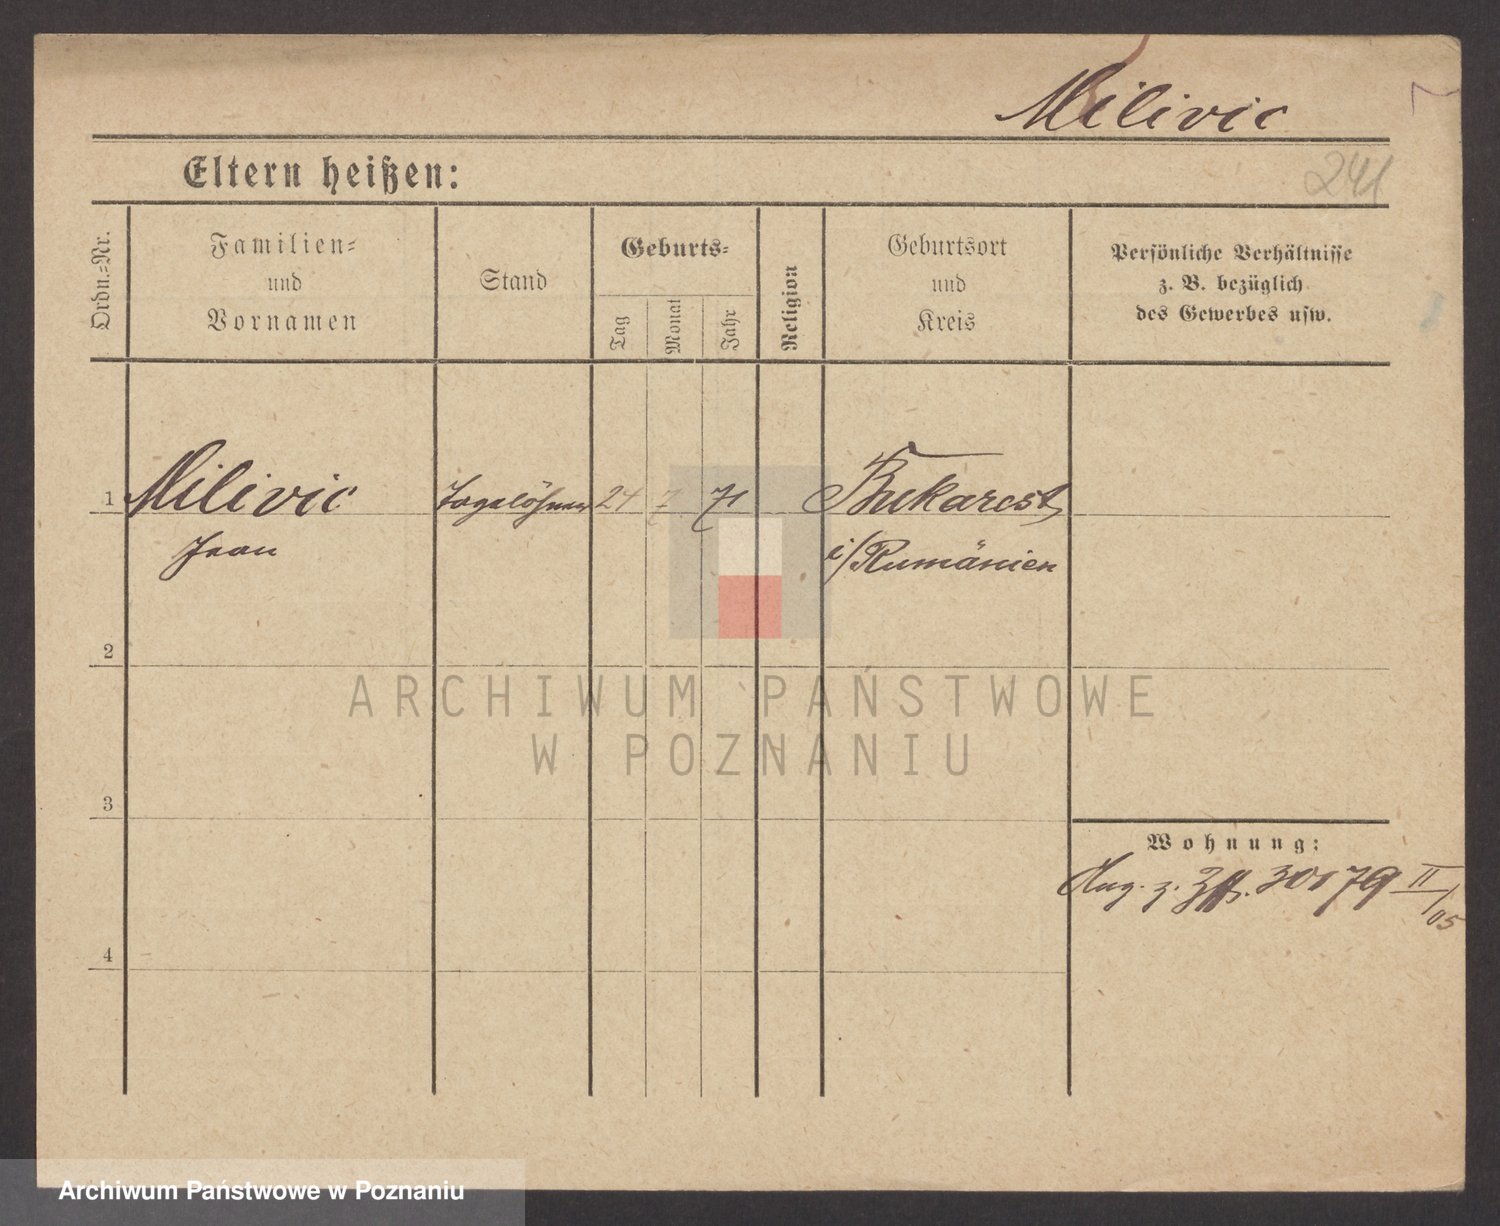 Milivic
241
Eltern heißen:
Ordn.-Nr.
Familien-
und
Vornamen
Stand
Geburts-
Tag
Monat
Jahr
Religion
Geburtsort
und
Kreis
Persönliche Verhältnisse
z. B. bezüglich
des Gewerbes usw.
1 Milivic Tagelöhner 24 7 71 Bukarest
Jean i/Rumänien
2
ARCHIWUM PAŃSTWOWE
W POZNANIU
3
Wohnung:
Ang. z. 79 II/05
4
Archiwum Państwowe w Poznaniu